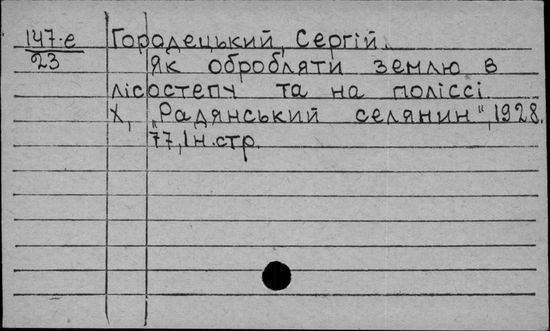 147-е Городецький, Сергій.
23
Як обробляти землю в
лісостепу та на поліссі.
Х, „Радянський селянин", 1928.
77, 1 н. стр.